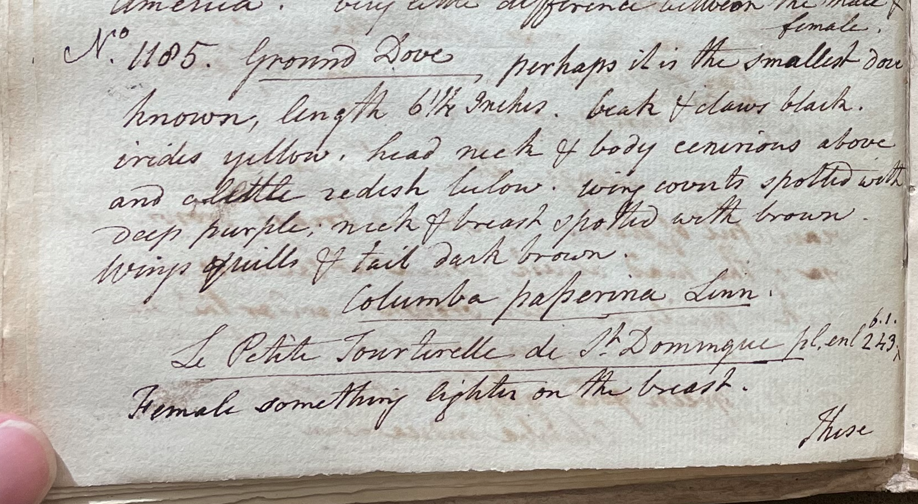 america. very little difference between the male &
female.
No. 1185. Ground Dove, perhaps it is the smallest dove
known, length 6 1/4 Inches. beak & claws black.
irides yellow. head neck & body cenirious above
and a little redish below. wing coverts spotted with
deep purple; neck & breast spotted with brown.
wings quills & tail dark brown.
Columba passerina Linn.
Le Petite Tourterelle de St. Domingue pl. enl 243
6.1.
Female something lighter on the breast.
These